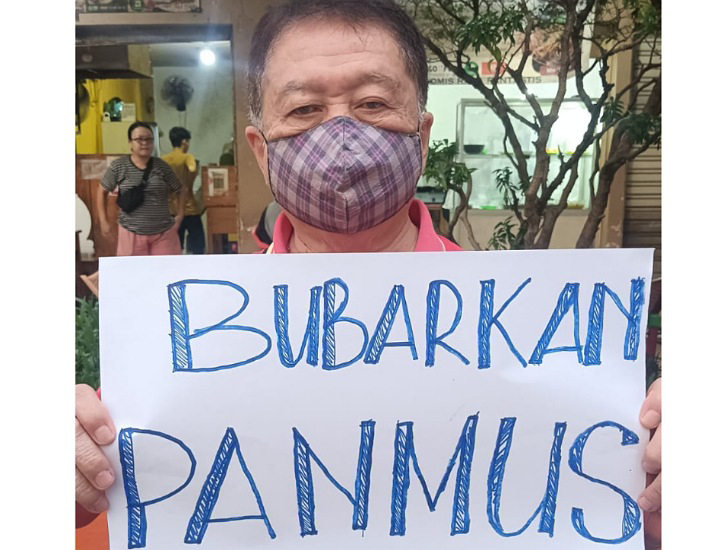 BUBARKAN
PANMUS